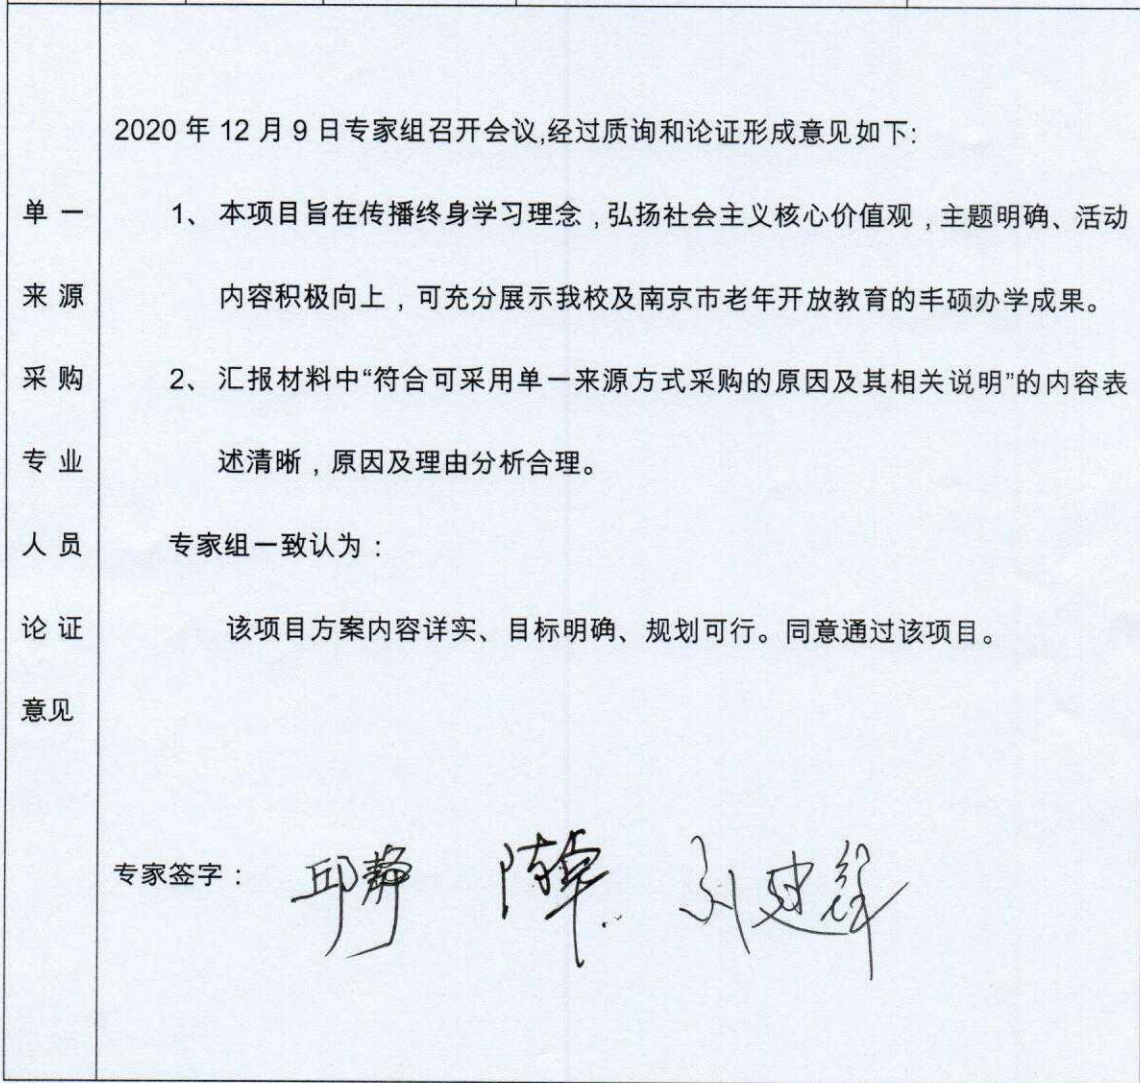 2020 年 12 月 9 日专家组召开会议,经过质询和论证形成意见如下:
单 一
1、 本项目旨在传播终身学习理念，弘扬社会主义核心价值观，主题明确、活动
来 源
内容积极向上，可充分展示我校及南京市老年开放教育的丰硕办学成果。
采 购
2、 汇报材料中“符合可采用单一来源方式采购的原因及其相关说明”的内容表
专 业
述清晰，原因及理由分析合理。
人 员
专家组一致认为：
论 证
该项目方案内容详实、目标明确、规划可行。同意通过该项目。
意见
专家签字： 邱静